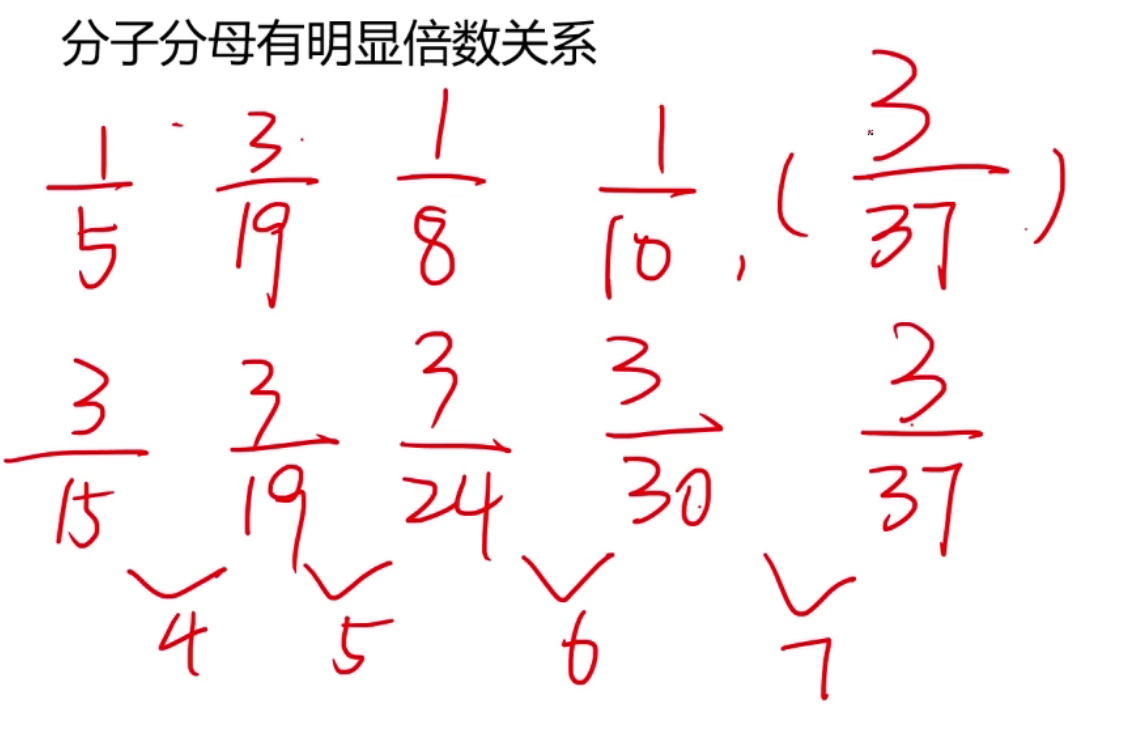 分子分母有明显倍数关系
1/5 3/19 1/8 1/10 , (3/37)
3/15 3/19 3/24 3/30 3/37
4 5 6 7